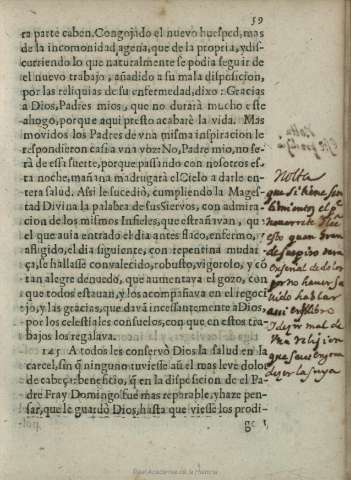 59
ta parte caben. Congojado el nuevo huesped, mas
de la incomodidad agena, que de la propria, y dis-
curriendo lo que naturalmente se podia seguir de
el nuevo trabajo, añadido a su mala disposicion,
por las reliquias de su enfermedad, dixo: Gracias
a Dios, Padres mios, que no durarà mucho este
ahogo, porque aqui presto acabarè la vida. Mas
movidos los Padres de vna misma inspiracion le
respondieron casi a vna voz: No, Padre mio, no se-
rà de essa suerte, porque passando con nosotros es-
ta noche, mañana madrugarà el Cielo a darle en-
tera salud. Assi le sucediò, cumpliendo la Mages-
tad Divina la palabra de sus Siervos, con admira
cion de los mismos Infieles, que estrañavan, qu
el que avia entrado el dia antes flaco, enfermo,
afligido, el dia siguiente, con repentina mudan
ça, se hallasse convalecido, robusto, vigoroso, y có
tan alegre denuedo, que aumentava el gozo, con
que todos estavan, y los acompañava en el regoci
jo, y las gracias, que davã incessantemente a Dios,
por los celestiales consuelos, con que en estos tra-
bajos los regalava.
145 A todos les conservò Dios la salud en la
carcel, sin q̃ ninguno tuviesse aũ el mas leve dolor
de cabeça: beneficio, q̃ en la disposicion de el Pa
dre Fray Domingo fue mas reparable, y haze pen-
sar, que le guardò Dios, hasta que viesse los prodi-
gios,
Notta
que si tiene sen
timientos el q̃
esto quan gran
de suspiro
por no haver sa
vido hablar
assi en libro
mal de
vna relijion
la suya
Real Academia de la Historia